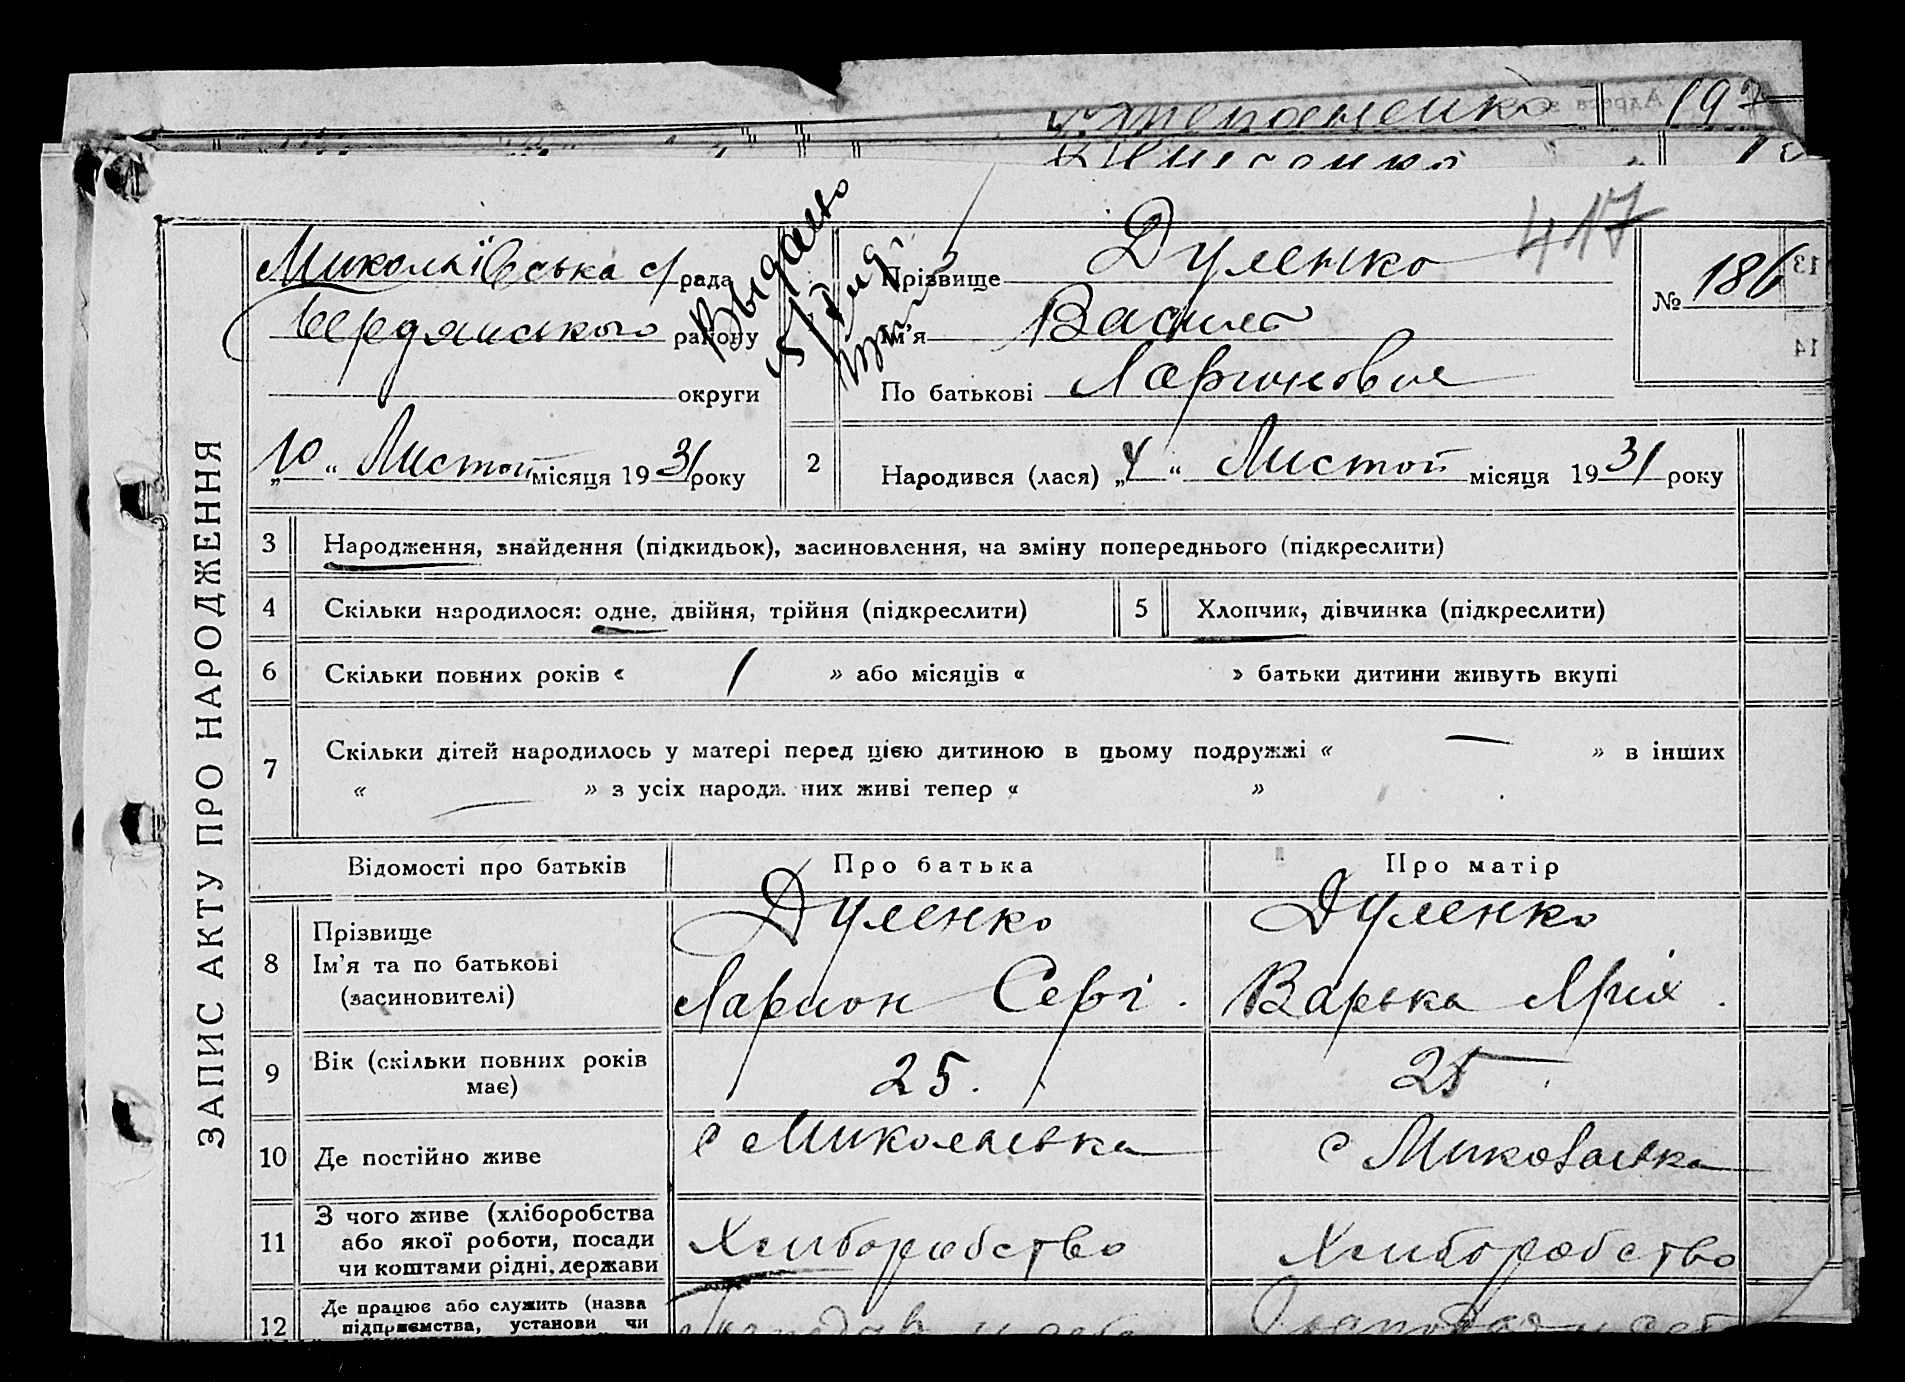 417
Миколаївська с/рада
Бердянського району
округи
„10“ Листоп місяця 1931 року
Прізвище Дуленко
Ім’я Василь
По батькові Ларионович
№ 186
2 Народився (лася) „4“ Листоп місяця 1931 року
ЗАПИС АКТУ ПРО НАРОДЖЕННЯ
3 Народження, знайдення (підкидьок), засиновлення, на зміну попереднього (підкреслити)
4 Скільки народилося: одне, двійня, трійня (підкреслити) 5 Хлопчик, дівчинка (підкреслити)
6 Скільки повних років « 1 » або місяців « » батьки дитини живуть вкупі
7 Скільки дітей народилось у матері перед цією дитиною в цьому подружжі « — » в інших
« — » з усіх народж. них живі тепер « »
Відомості про батьків Про батька Про матір
8 Прізвище Дуленко Дуленко
Ім’я та по батькові Ларион Сергі. Варька
(засиновителі)
9 Вік (скільки повних років має) 25. 25
10 Де постійно живе с Миколаївка с Миколаївка
11 З чого живе (хліборобства
або якої роботи, посади Хліборобство Хліборобство
чи коштами рідні, держави
12 Де працює або служить (назва
підприємства, установи чи